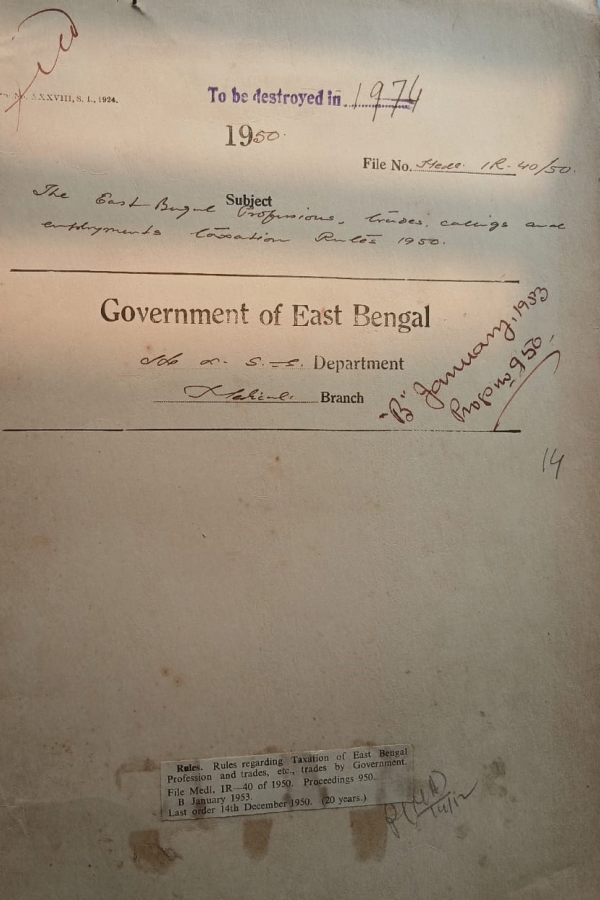 XXXVIII, S. I., 1924.
To be destroyed in 1974
1950.
File No. Medl. 1R-40/50.
Subject
The East Bengal Professions, trades, callings and
employments taxation Rules 1950.
Government of East Bengal
Department
Medical Branch
"B" January, 1953
Progs no 950.
14
Rules. Rules regarding Taxation of East Bengal
Profession and trades, etc., trades by Government.
File Medl. 1R—40 of 1950. Proceedings 950.
B January 1953.
Last order 14th December 1950. (20 years.)